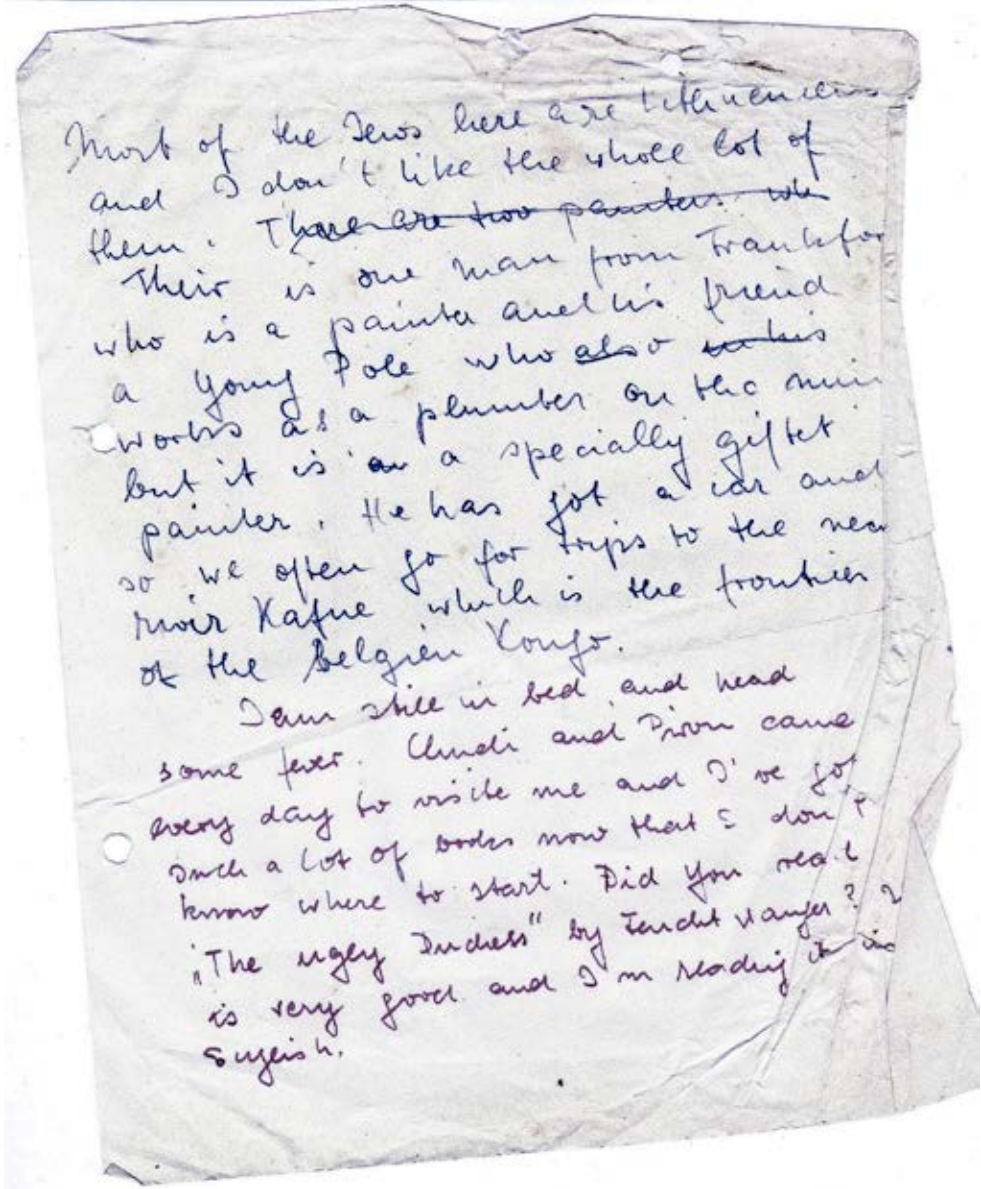 Most of the Jews here are Lithuenciens
and I don't like the whole lot of
them. There are two painters who
Their is one man from Frankfor
who is a painter and his friend
a young Pole who also in his
works as a plumber on the min
but it is a specially giftet
painter. He has got a car and
so we often go for trips to the near
river Kafue which is the frontier
of the Belgien Kongo.
I am still in bed and head
some fever. and came
every day to visite me and I've got
such a lot of books now that I don't
know where to start. Did you read
"The ugly Duchess" by Feuchtwanger?
is very good and I'm reading it in
English.